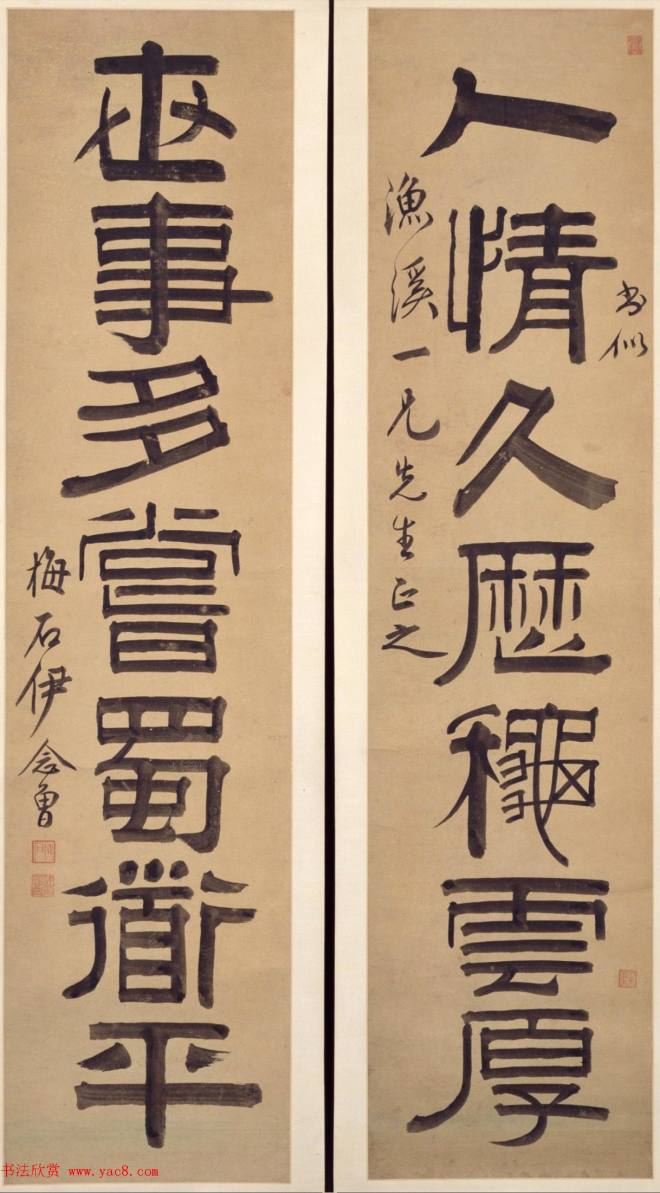 書似
人情久歷穐雲厚
漁溪一兄先生正之
世事多嘗蜀衜平
梅石伊念曾
书法欣赏 www.yac8.com